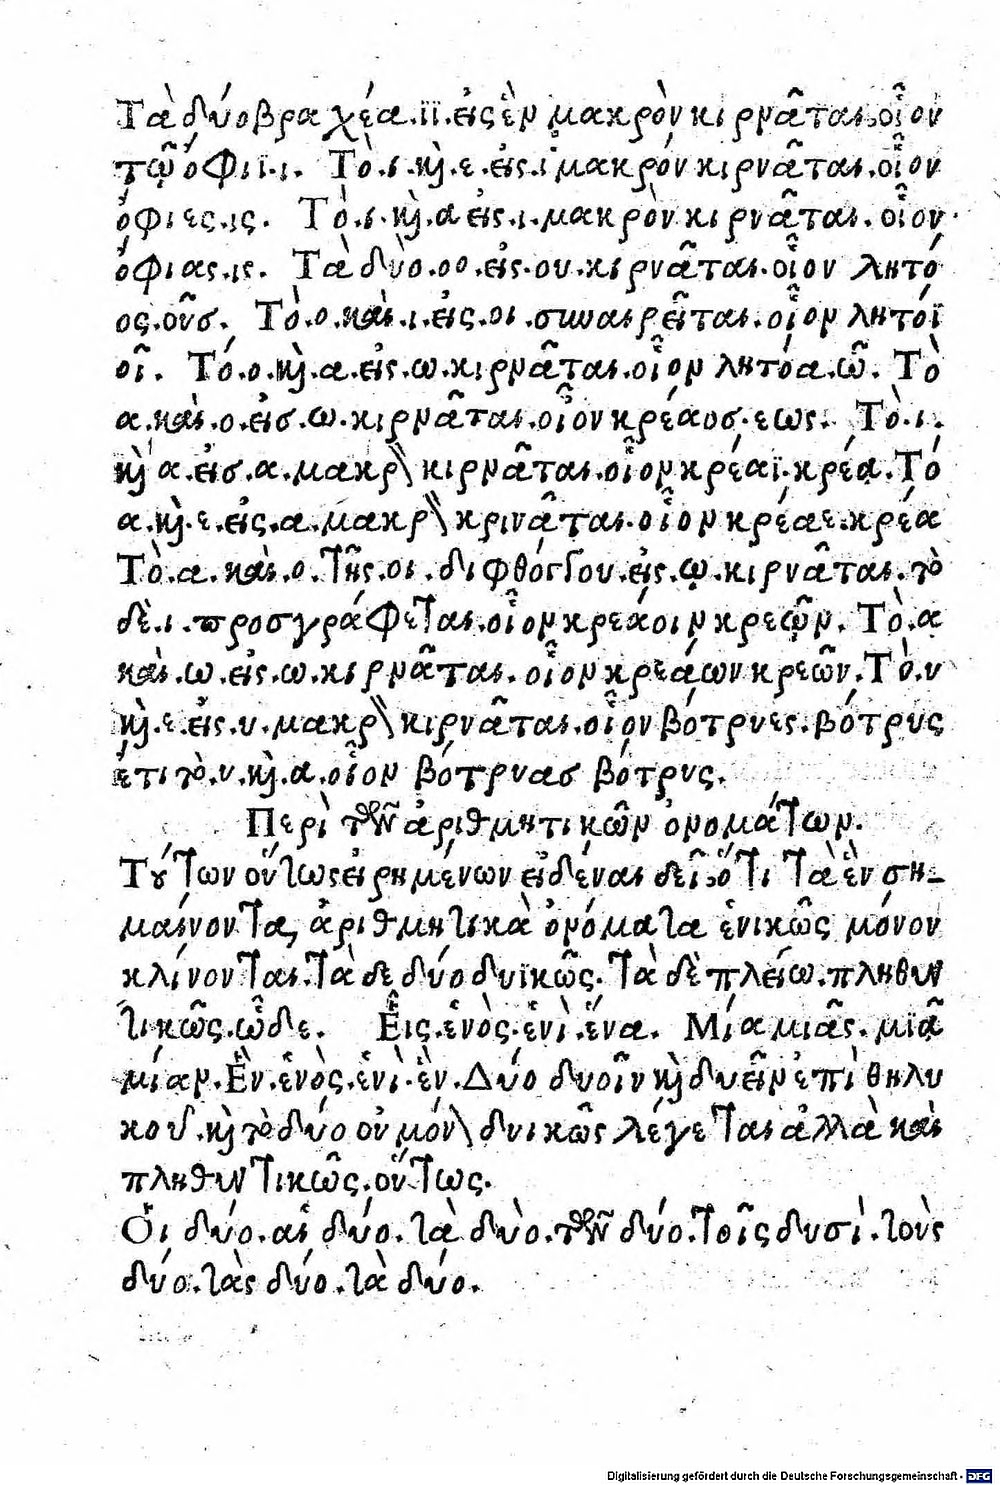 Τὰ δύο βραχέα.ϊϊ.εἰς ἓν μακρὸν κιρνᾶται.οἷον
τῷ ὄφιϊ.ι. Τὸ.ι.καὶ.ε.εἰς.ι μακρόν κιρνᾶται.οἷον
ὄφιες.ις. Τὸ.ι.καὶ.α εἰς.ι.μακρὸν κιρνᾶται.οἷον.
ὄφιας.ις. Τὰ δύο.οο.εἰς.ου.κιρνᾶται.οἷον λητό
ος.οῦσ. Τὸ.ο.καὶ.ι.εἰς.οι.συναιρεῖται.οἷον λητόϊ
οῖ. Τό.ο.καὶ.α.εἰς.ω.κιρνᾶται.οἷον λητόα.ῶ. Τὸ
α.καὶ.ο.εἰσ.ω.κιρνᾶται.οἷον κρέαοσ.εως. Τὸ.ι.
καὶ α.εἰσ.α.μακρ\ κιρνᾶται.οἷον κρέαϊ.κρέα.Τό
α.καὶ.ε.εἰς.α.μακρ\ κρινᾶται.οἷον κρέαε.κρέα
Τὸ.α.καὶ.ο.τῆς.οι.διφθόγγου.εἰς.ῳ.κιρνᾶται.τὸ
δὲ.ι.προσγράφεται.οἷον κρεάοιν κρεῷν. Τὸ.α
καὶ.ω.εἰς.ω.κιρνᾶται.οἷον κρεάων κρεῶν.Τὸ.υ
καὶ.ε.εἰς.υ.μακρ\ κιρνᾶται.οἷον βότρυες.βότρυς
ἔτι τὸ.υ.καὶ.α.οἷον βότρυασ βότρυς.
Περὶ τῶν ἀριθμητικῶν ὀνομάτων.
Τούτων οὕτως εἰρημένων εἰδέναι δεῖ, ὅτι τὰ ἓν ση-
μαίνοντα, ἀριθμητικὰ ὀνόματα ἑνικῶς μόνον
κλίνονται.τὰ δε δύο δυϊκῶς. τὰ δὲ πλείω.πληθυν
τικῶς.ὧδε. Εἷς.ἑνὸς.ἑνὶ.ἕνα. Μία μιᾶς.μιᾷ
μίαν.Ἓν.ἑνὸς.ἑνὶ.ἓν.Δύο δυοῖν καὶ δυεῖν ἐπὶ θηλυ
κοῦ.καὶ τὸ δύο οὐ μόν\ δυικῶς λέγεται ἀλλὰ καὶ
πληθυντικῶς.οὕτως.
Οἱ δύο.αἱ δύο.τὰ δὺο.τῶν δύο.τοῖς δυσὶ.τοὺς
δύο.τὰς δύο.τὰ δύο.
Digitalisierung gefördert durch die Deutsche Forschungsgemeinschaft - DFG